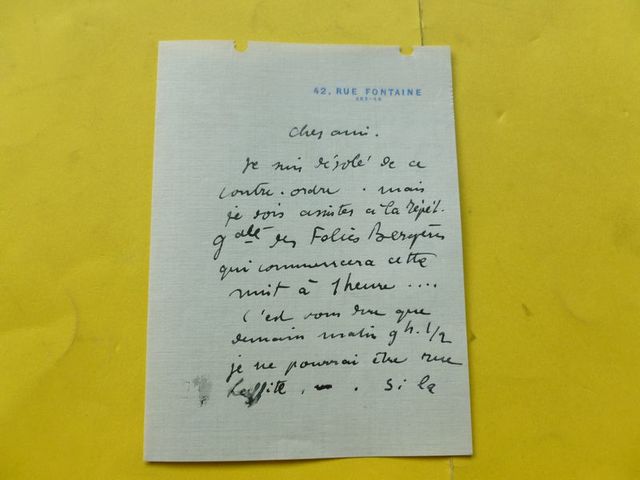 42, RUE FONTAINE
cher ami.
Je suis désolé de ce
contre-ordre. mais
je dois assister à la répét.
gale des Folies Bergère
qui commencera cette
nuit à 1 heure ....
C'est vous dire que
demain matin 9h.1/2
je ne pourrai être rue
Laffite, . Si la